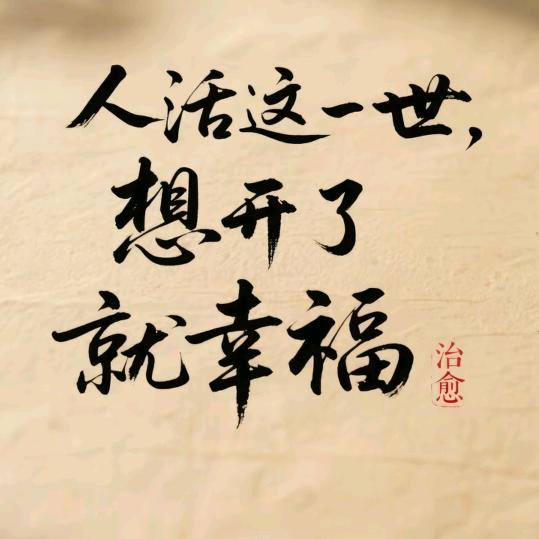 人活这一世，
想开了
就幸福
治愈